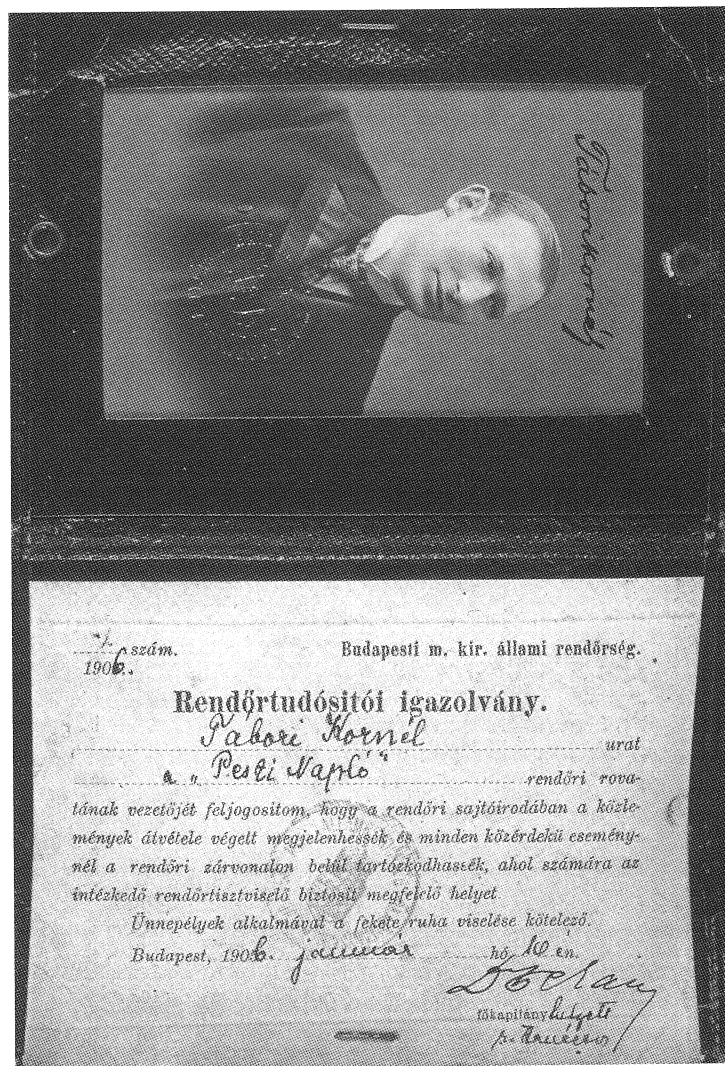 Tábori Kornél
szám.
1906.
Budapesti m. kir. állami rendőrség.
Rendőrtudósitói igazolvány.
Tábori Kornél urat
a „Pesti Napló" rendőri rova-
tának vezetőjét feljogositom, hogy a rendőri sajtóirodában a közle-
mények átvétele végett megjelenhessék és minden közérdekü esemény-
nél a rendőri zárvonalon belül tartózkodhassék, ahol számára az
intézkedő rendőrtisztviselő biztosit megfelelő helyet.
Ünnepélyek alkalmával a fekete ruha viselése kötelező.
Budapest, 1906. január hó 10 én.
főkapitány helyett